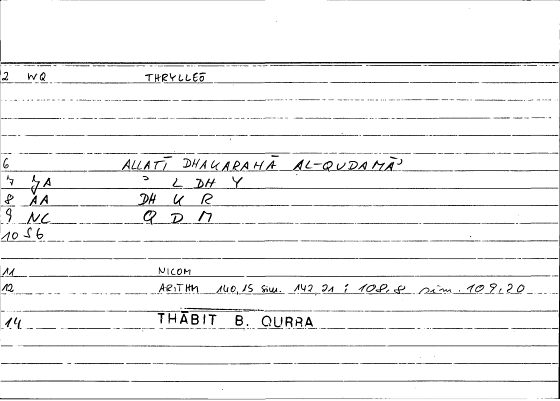 2 WQ THRYLLEŌ
6 ALLATĪ DHAKARAHĀ AL-QUDAMĀʾ
7 YA ʾ L DH Y
8 AA DH K R
9 NC Q D M
10 S6
11 NICOM
12 ARITHM 140,15 sim. 142,21 ; 108,8 sim. 109,20
14 THĀBIT B. QURRA